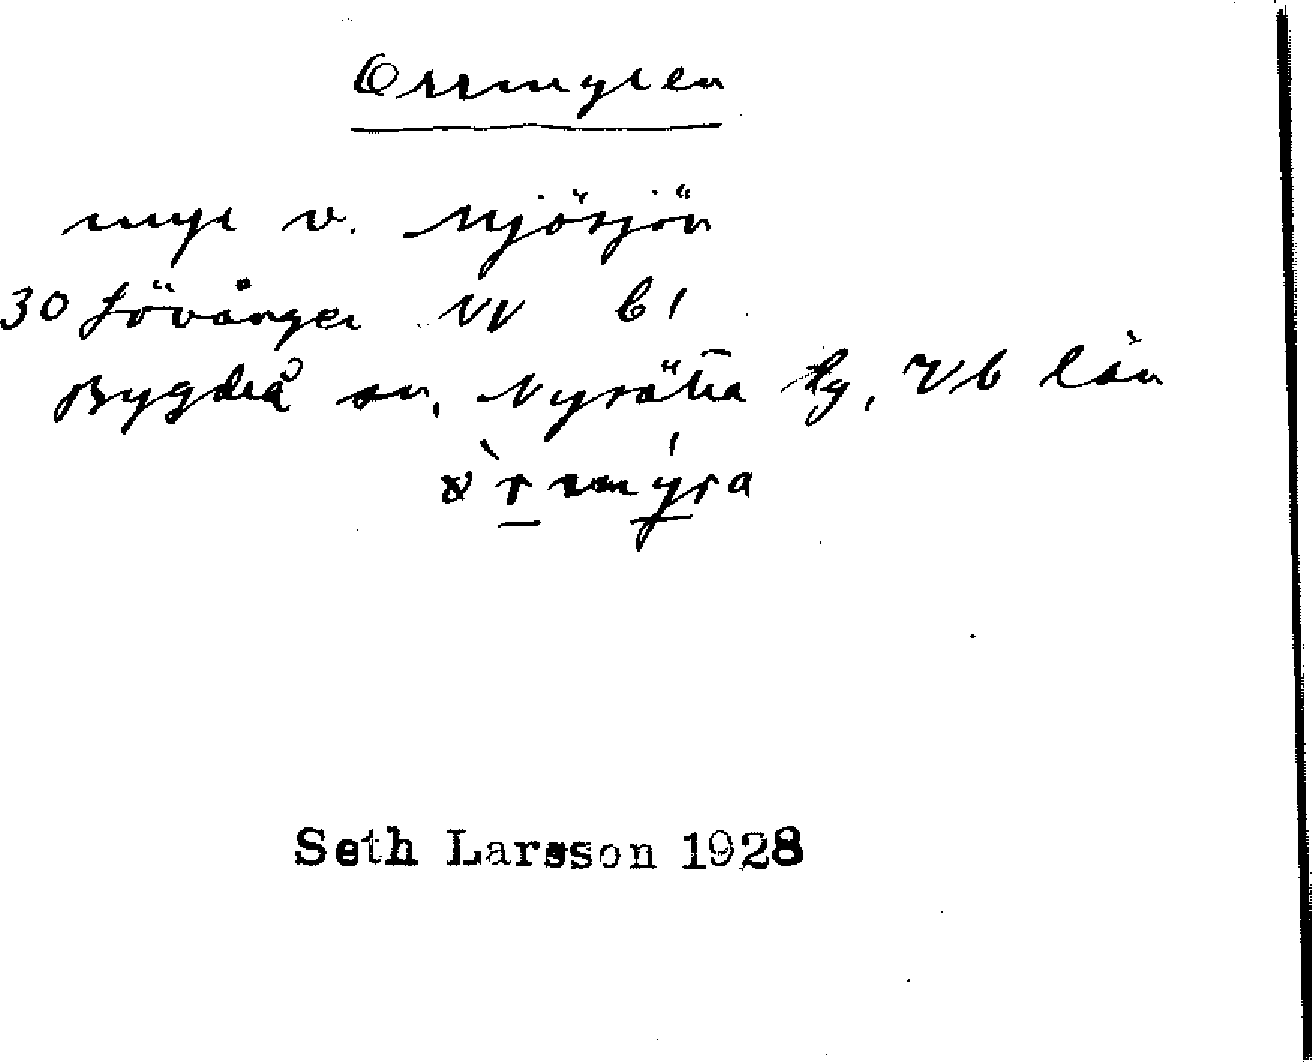 Orrmyren
myr v. Mjösjön
30 Lövånger NV b1
Bygdeå sn, Nysätra tg, Vb län
Seth Larsson 1928